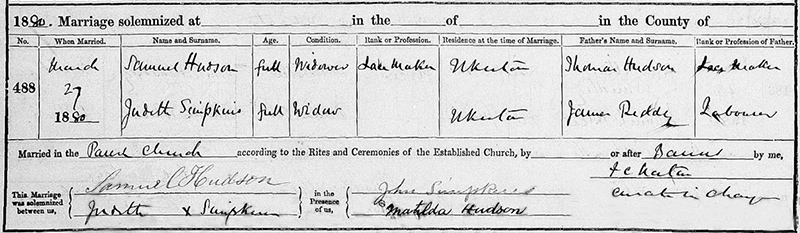 1880. Marriage solemnized at in the of in the County of
No. When Married. Name and Surname. Age. Condition. Rank or Profession. Residence at the time of Marriage. Father's Name and Surname. Rank or Profession of Father.
488 March 27 1880 Samuel Hudson full Widower Lace Maker Ilkeston Thomas Hudson Lace Maker
Judith Simpkins full Widow Ilkeston James Reddy Labourer
Married in the Parish Church according to the Rites and Ceremonies of the Established Church, by or after Banns by me,
This Marriage was solemnized between us, Samuel Hudson in the Presence of us, John Simpkins
Judith X Simpkins Matilda Hudson Curate in charge